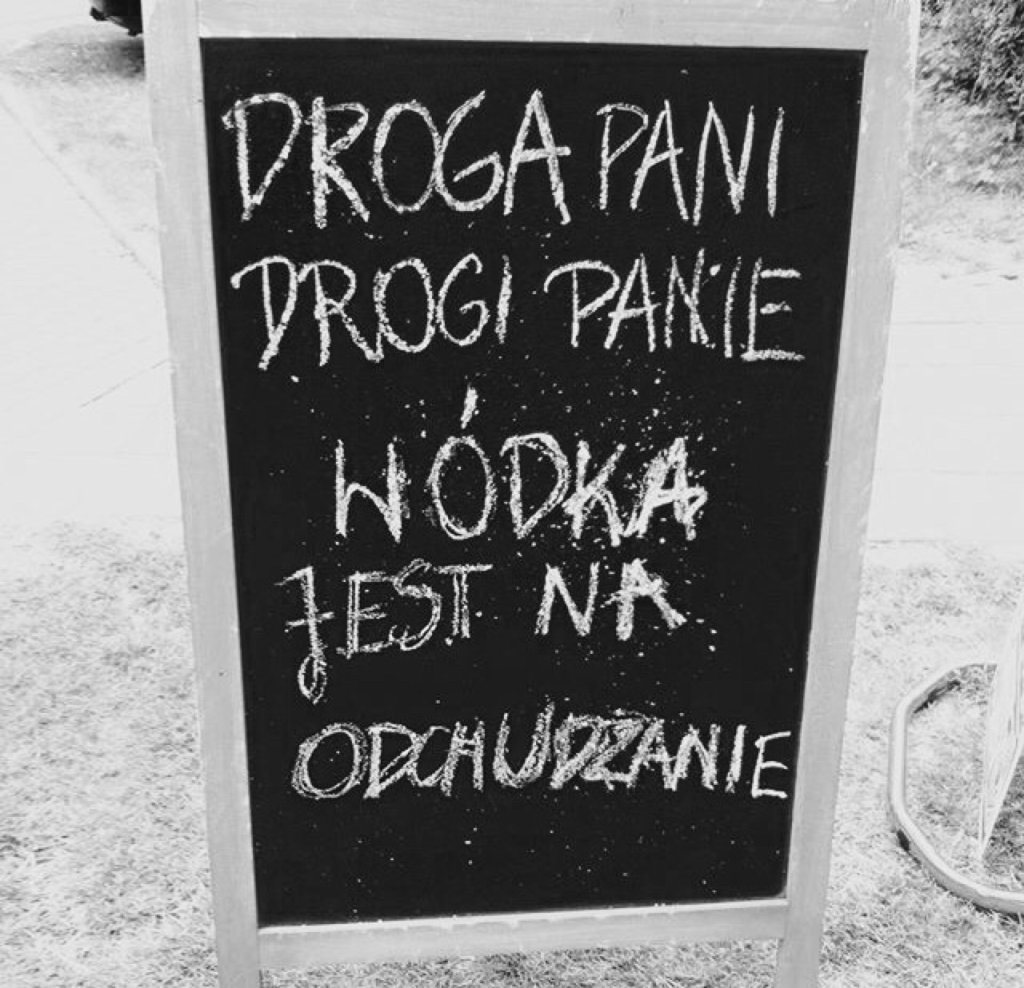 DROGA PANI
DROGI PANIE
WÓDKA
JEST NA
ODCHUDZANIE